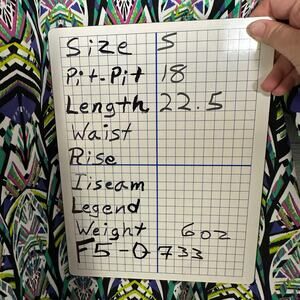 Size 5
Pit-Pit 18
Length 22.5
Waist
Rise
Iiseam
Legend
Weight 6oz
F5-0733